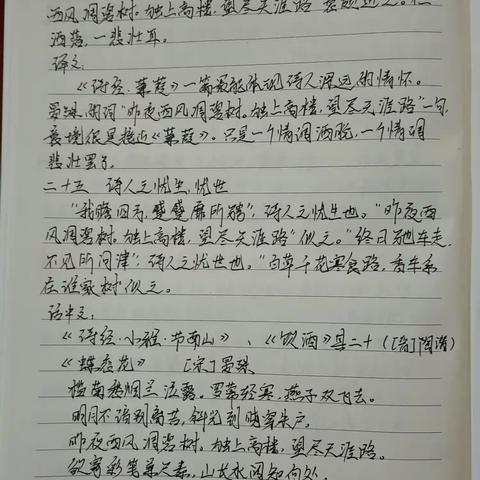 西风凋碧树。独上高楼，望尽天涯路"意颇近之。但一
洒落，一悲壮耳。
译文：
《诗经·蒹葭》一篇最能体现诗人深远的情怀。
晏殊的词"昨夜西风凋碧树。独上高楼，望尽天涯路"一句，
意境很是接近《蒹葭》。只是一个情调洒脱，一个情调
悲壮罢了。
二十五 诗人之忧生、忧世
"我瞻四方，蹙蹙靡所骋"，诗人之忧生也。"昨夜西
风凋碧树。独上高楼，望尽天涯路"似之。"终日驰车走，
不见所问津"，诗人之忧世也。"百草千花寒食路，香车系
在谁家树"似之。
话中文：
《诗经·小雅·节南山》、《饮酒》其二十（[晋]陶潜）
《蝶恋花》 [宋]晏殊
槛菊愁烟兰泣露。罗幕轻寒，燕子双飞去。
明月不谙别离苦，斜光到晓穿朱户。
昨夜西风凋碧树。独上高楼，望尽天涯路。
欲寄彩笔兼尺素，山长水阔知何处。